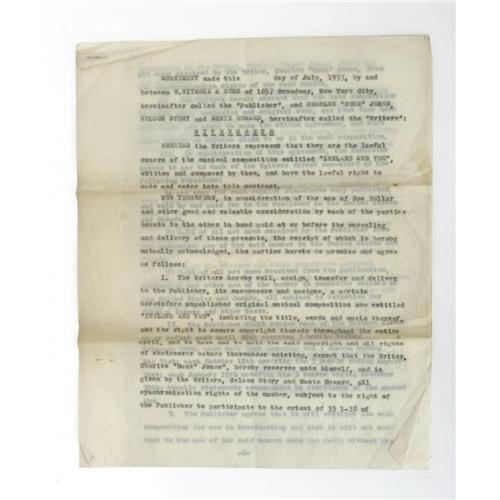 AGREEMENT made this day of July, 1933, by and
between M. WITMARK & SONS of 1657 Broadway, New York City,
hereinafter called the "Publisher", and CHARLES "BUCK" JONES,
NELSON STORY and MONTE HOWARD, hereinafter called the "Writers":
W I T N E S S E T H
WHEREAS the Writers represent that they are the lawful
owners of the musical composition entitled "IRELAND AND YOU",
written and composed by them, and have the lawful right to
make and enter into this contract.
NOW THEREFORE, in consideration of the sum of One Dollar
and other good and valuable consideration by each of the parties
hereto to the other in hand paid at or before the ensealing
and delivery of these presents, the receipt of which is hereby
mutually acknowledged, the parties hereto do promise and agree
as follows:
I. The Writers hereby sell, assign, transfer and deliver
to the Publisher, its successors and assigns, a certain
heretofore unpublished original musical composition now entitled
"IRELAND AND YOU", including the title, words and music thereof,
and the right to secure copyright therein throughout the entire
world, and to have and to hold the said copyright and all rights
of whatsoever nature thereunder existing, except that the Writer,
Charles "Buck" Jones, hereby reserves unto himself, and is
given by the Writers, Nelson Story and Monte Howard, all
synchronization rights of the number, subject to the right of
the Publisher to participate to the extent of 33 1-3% of